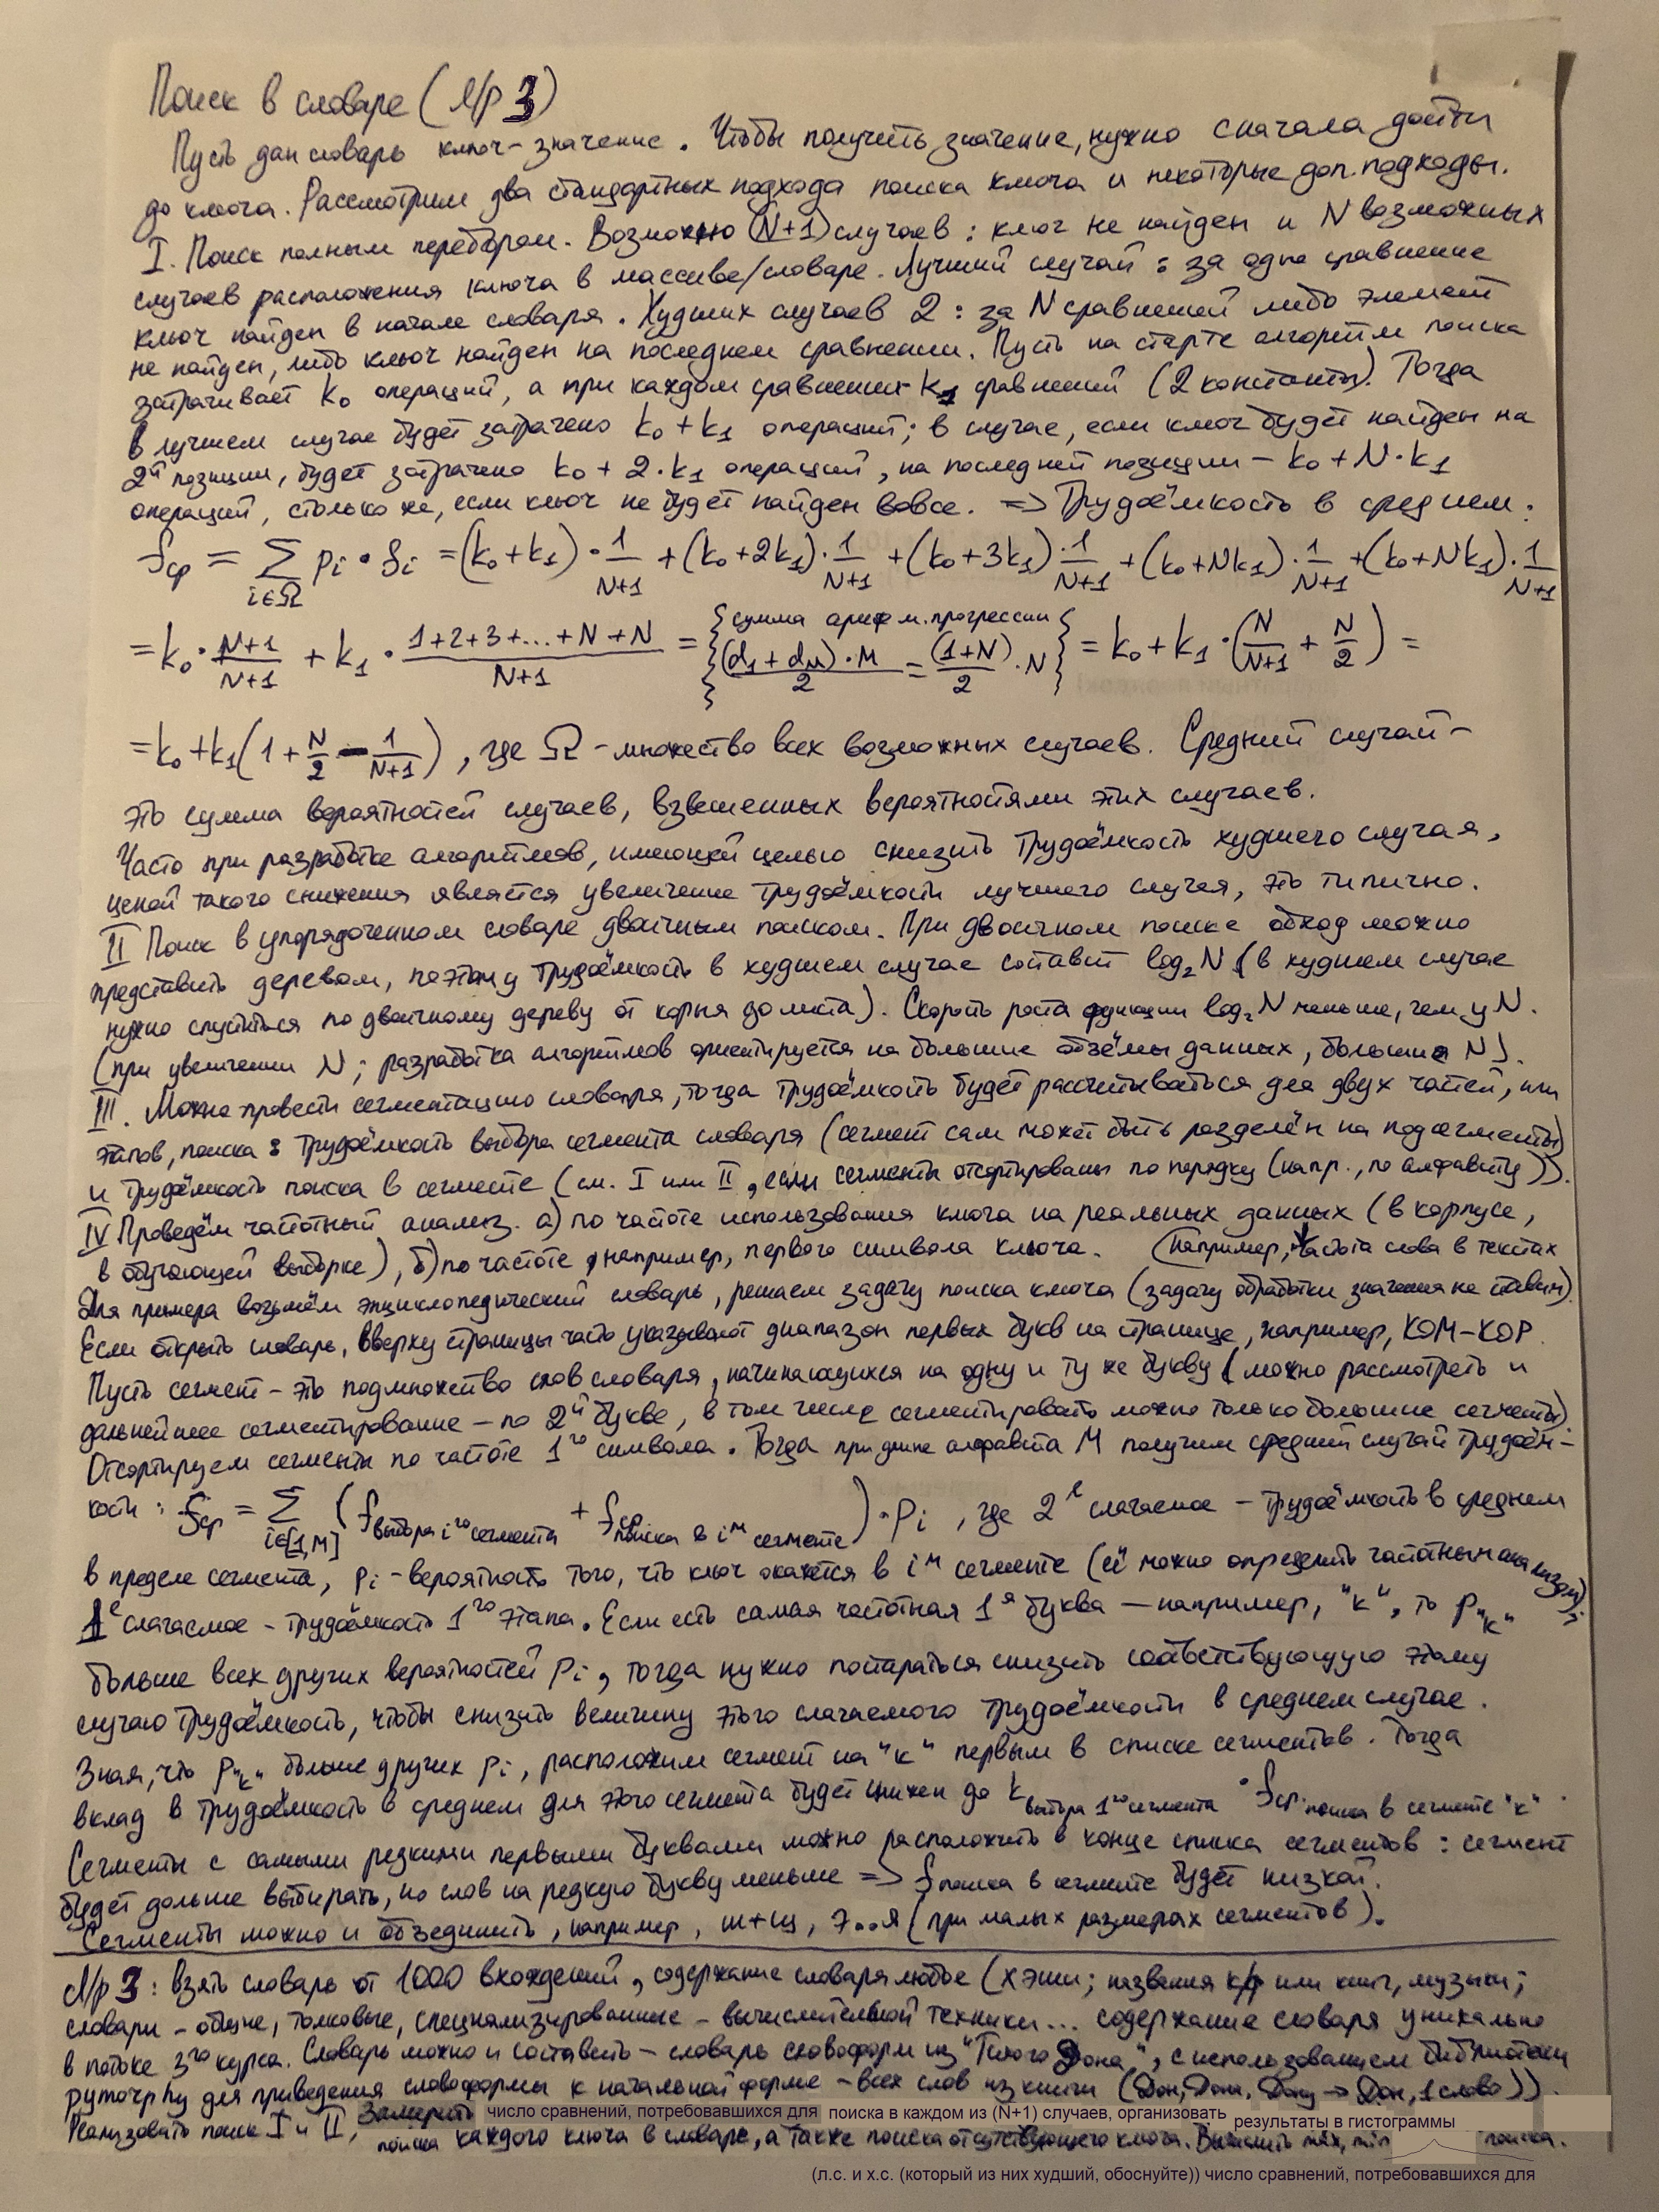 Поиск в словаре (Л/Р 3)
Пусть дан словарь ключ-значение. Чтобы получить значение, нужно сначала дойти
до ключа. Рассмотрим два стандартных подхода поиска ключа и некоторые доп. подходы.
I. Поиск полным перебором. Возможно (N+1) случаев: ключ не найден и N возможных
случаев расположения ключа в массиве/словаре. Лучший случай: за одно сравнение
ключ найден в начале словаря. Худших случаев 2: за N сравнений либо элемент
не найден, либо ключ найден на последнем сравнении. Пусть на старте алгоритм поиска
затрачивает k₀ операций, а при каждом сравнении k₁ сравнений (2 константы). Тогда
в лучшем случае будет затрачено k₀ + k₁ операций; в случае, если ключ будет найден на
2й позиции, будет затрачено k₀ + 2·k₁ операций, на последней позиции – k₀ + N·k₁
операций, столько же, если ключ не будет найден вовсе. => Трудоёмкость в среднем:
f_ср = ∑_{i∈Ω} p_i · f_i = (k₀+k₁)·1/(N+1) + (k₀+2k₁)·1/(N+1) + (k₀+3k₁)·1/(N+1) + (k₀+Nk₁)·1/(N+1) + (k₀+Nk₁)·1/(N+1)
= k₀·(N+1)/(N+1) + k₁·(1+2+3+...+N+N)/(N+1) = {сумма арифм. прогрессии (d₁+d_M)·M/2 = (1+N)/2·N} = k₀+k₁·(N/(N+1) + N/2) =
= k₀+k₁(1+N/2 – 1/(N+1)), где Ω – множество всех возможных случаев. Средний случай –
это сумма вероятностей случаев, взвешенных вероятностями этих случаев.
Часто при разработке алгоритмов, имеющей целью снизить трудоёмкость худшего случая,
ценой такого снижения является увеличение трудоёмкости лучшего случая, это типично.
II Поиск в упорядоченном словаре двоичным поиском. При двоичном поиске обход можно
представить деревом, поэтому трудоёмкость в худшем случае составит log₂N (в худшем случае
нужно спуститься по двоичному дереву от корня до листа). Скорость роста функции log₂N меньше, чем у N.
(при увеличении N; разработка алгоритмов ориентируется на большие объёмы данных, большие N).
III. Можно провести сегментацию словаря, тогда трудоёмкость будет рассчитываться для двух частей, или
этапов, поиска: трудоёмкость выбора сегмента словаря (сегмент сам может быть разделён на подсегменты)
и трудоёмкость поиска в сегменте (см. I или II, если сегменты отсортированы по порядку (напр., по алфавиту)).
IV Проведём частотный анализ. а) по частоте использования ключа на реальных данных (в корпусе,
в обучающей выборке), б) по частоте, например, первого символа ключа. (например, частота слова в текстах
Для примера возьмём энциклопедический словарь, решаем задачу поиска ключа (задачу обработки значения не ставим).
Если открыть словарь, вверху страницы часто указывают диапазон первых букв на странице, например, КОМ–КОР.
Пусть сегмент – это подмножество слов словаря, начинающихся на одну и ту же букву (можно рассмотреть и
дальнейшее сегментирование – по 2й букве, в том числе сегментировать можно только большие сегменты).
Отсортируем сегменты по частоте 1го символа. Тогда при длине алфавита M получим средний случай трудоём-
кости: f_ср = ∑_{i∈[1,M]} (f_{выбора iго сегмента} + f_{ср поиска в iм сегменте})·p_i, где 2е слагаемое – трудоёмкость в среднем
в пределе сегмента, p_i – вероятность того, что ключ окажется в iм сегменте (её можно определить частотным анализом);
1е слагаемое – трудоёмкость 1го этапа. Если есть самая частотная 1я буква – например, "к", то p_"к"
больше всех других вероятностей p_i, тогда нужно постараться снизить соответствующую этому
случаю трудоёмкость, чтобы снизить величину этого слагаемого трудоёмкости в среднем случае.
Зная, что p_"к" больше других p_i, расположим сегмент на "к" первым в списке сегментов. Тогда
вклад в трудоёмкость в среднем для этого сегмента будет снижен до k_{выбора 1го сегмента} · f_{ср. поиска в сегменте "к"}.
Сегменты с самыми редкими первыми буквами можно расположить в конце списка сегментов: сегмент
будет дольше выбирать, но слов на редкую букву меньше => f_{поиска в сегменте} будет низкой.
Сегменты можно и объединить, например, ш+щ, э..я (при малых размерах сегментов).
Л/р 3: взять словарь от 1000 вхождений, содержание словаря любое (хэши; названия к/ф или книг, музыки;
словари – общие, толковые, специализированные – вычислительной техники... содержание словаря уникально
в потоке 3го курса. Словарь можно и составить – словарь словоформ из "Тихого Дона", с использованием библиотеки
pymorphy для приведения словоформы к начальной форме – всех слов из книги (Дон, Дона, Дону → Дон, 1 слово)).
Реализовать поиск I и II, Замерить число сравнений, потребовавшихся для поиска в каждом из (N+1) случаев, организовать результаты в гистограммы
поиска каждого ключа в словаре, а также поиска отсутствующего ключа. Вычислить max, min поиска.
(л.с. и х.с. (который из них худший, обоснуйте)) число сравнений, потребовавшихся для